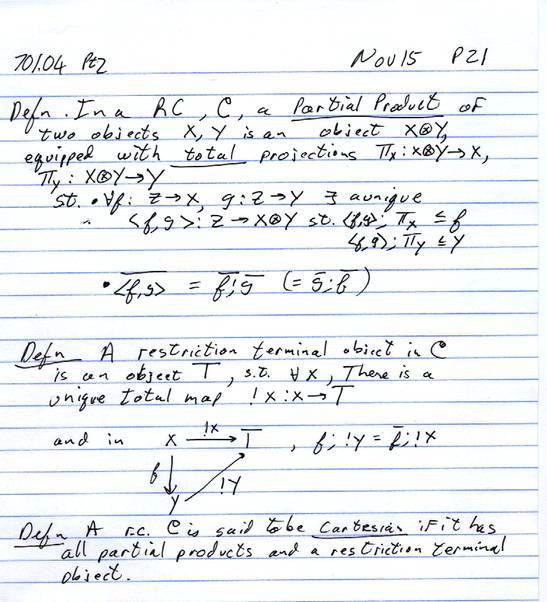 701.04 Pt2 Nov 15 P21
Defn. In a RC, C, a Partial Product of
two objects X, Y is an object X⊗Y,
equipped with total projections Πx : X⊗Y→X,
Πy : X⊗Y→Y
st. • ∀f: Z→X, g: Z→Y ∃ a unique
<f,g>: Z→X⊗Y st. <f,g>; Πx ≤ f
<f,g>; Πy ≤ Y
• \overline{<f,g>} = \overline{f};\overline{g} (= \overline{g};\overline{f})
Defn A restriction terminal object in C
is an object T, s.t. ∀X, There is a
unique total map !X : X→T
and in X !X→ T , f; !Y = \overline{f}; !X
f↓
Y !Y
Defn A r.c. C is said to be Cartesian iff it has
all partial products and a restriction terminal
object.